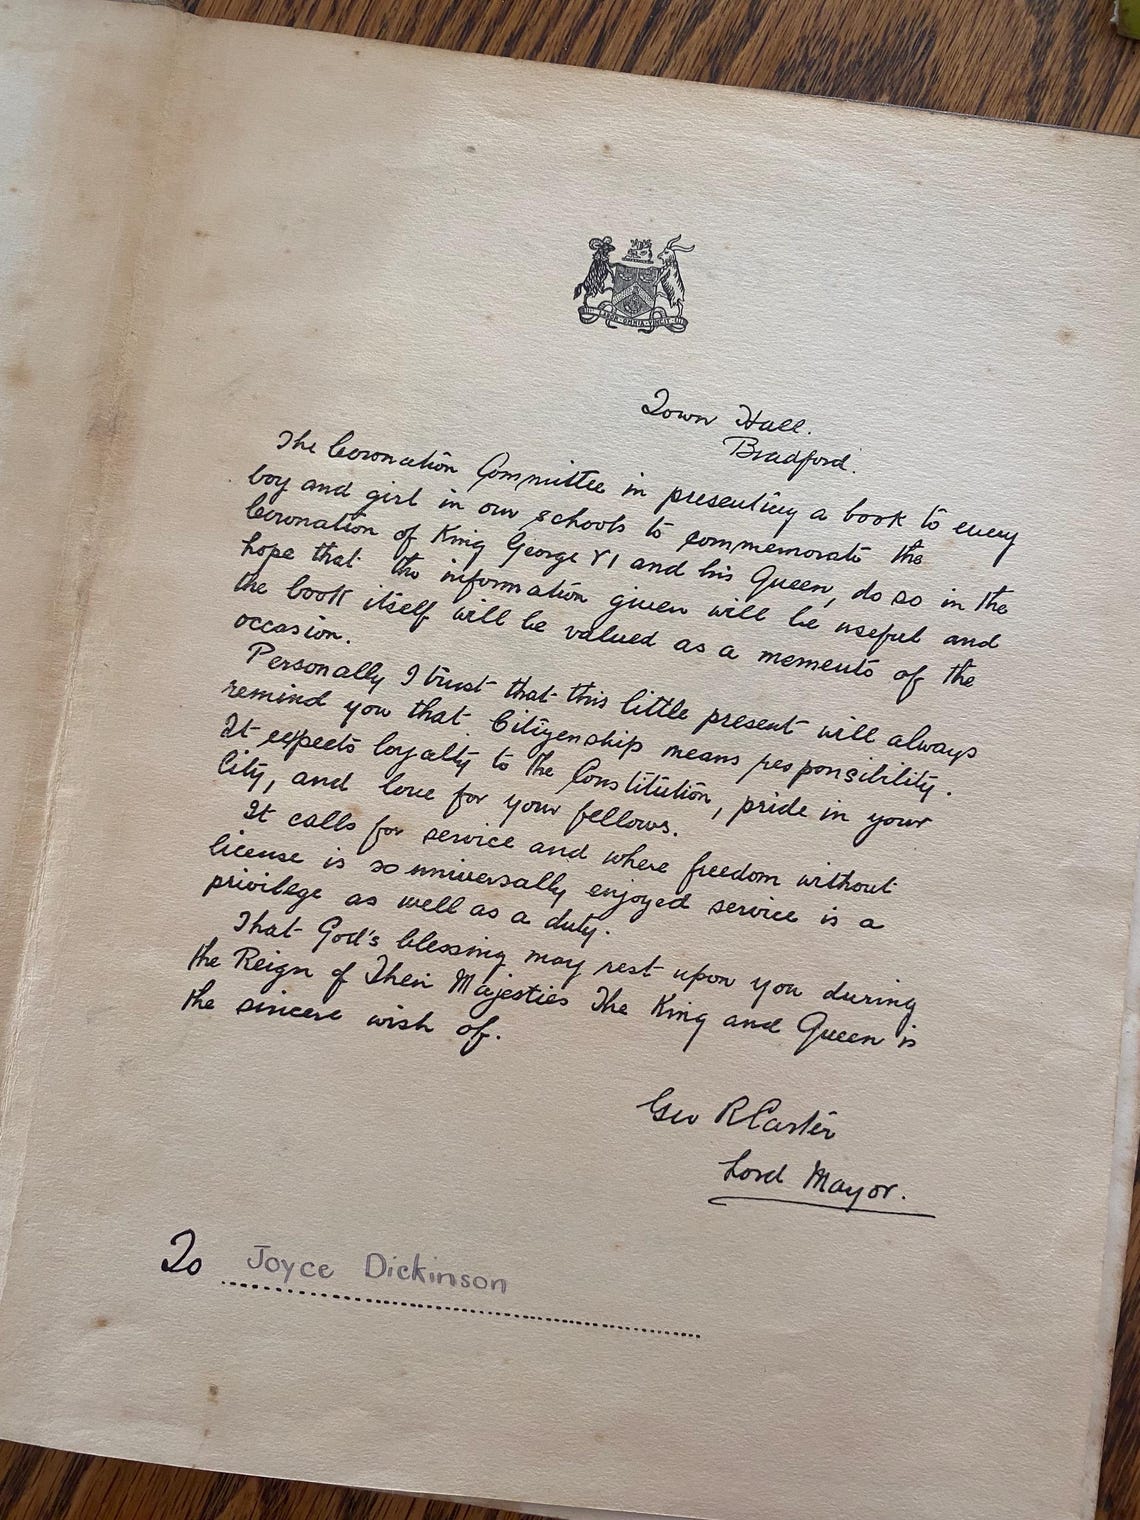 LABOR · OMNIA · VINCIT
Town Hall.
Bradford.
The Coronation Committee in presenting a book to every
boy and girl in our schools to commemorate the
Coronation of King George VI and his Queen, do so in the
hope that the information given will be useful and
the book itself will be valued as a memento of the
occasion.
Personally I trust that this little present will always
remind you that Citizenship means responsibility.
It expects loyalty to the Constitution, pride in your
City, and love for your fellows.
It calls for service and where freedom without
license is so universally enjoyed service is a
privilege as well as a duty.
That God's blessing may rest upon you during
the Reign of Their Majesties The King and Queen is
the sincere wish of.
Geo R Carter
Lord Mayor.
To Joyce Dickinson